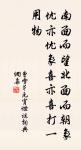 南面而坐北面而朝象
忧亦忧象喜亦喜打一
用物
曹雪芹元宵灯谜